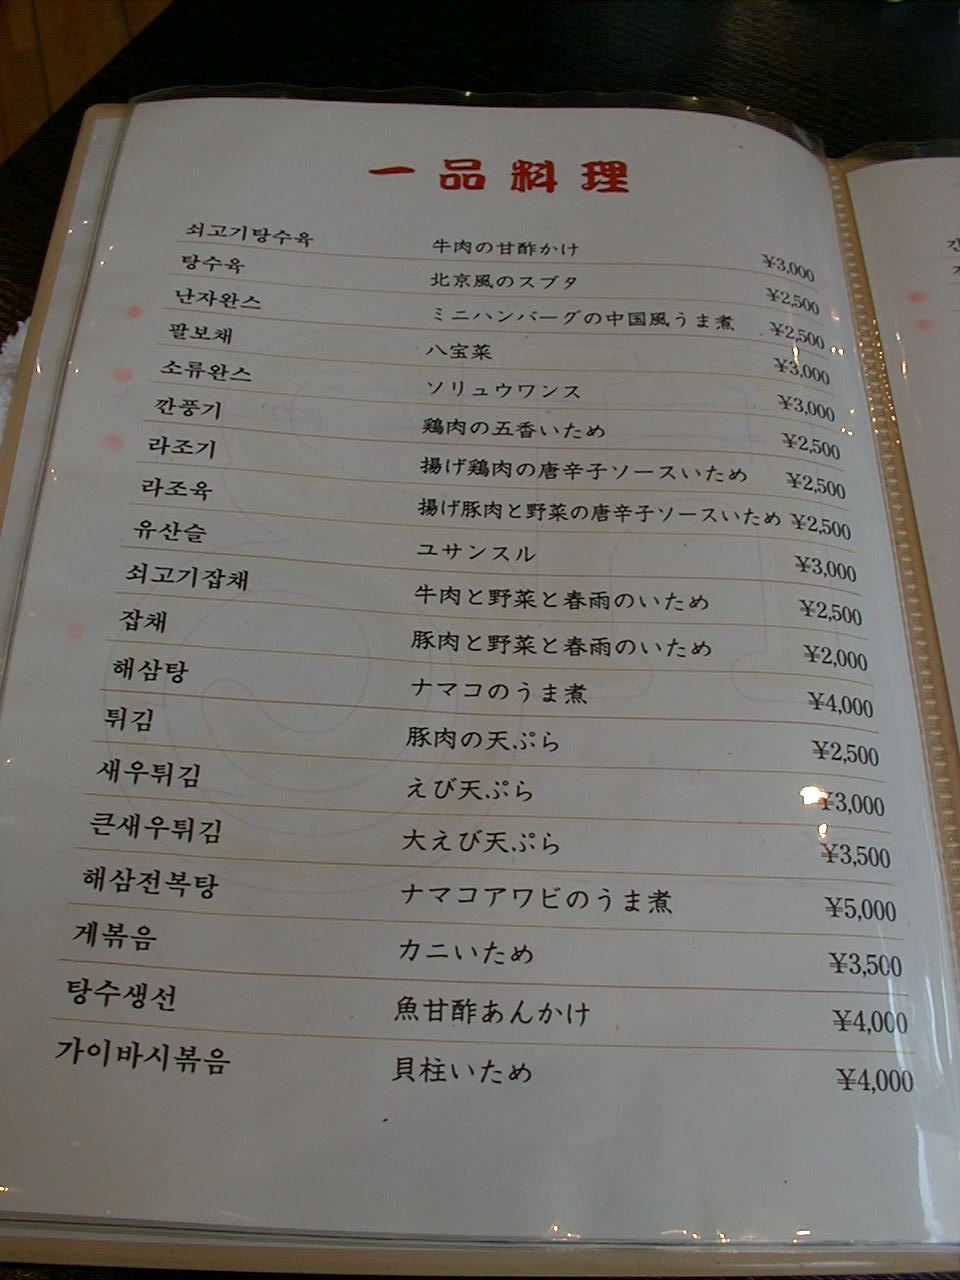 一品料理
쇠고기탕수육 牛肉の甘酢かけ ¥3,000
탕수육 北京風のスブタ ¥2,500
난자완스 ミニハンバーグの中国風うま煮 ¥2,500
팔보채 八宝菜 ¥3,000
소류완스 ソリュウワンス ¥3,000
깐풍기 鶏肉の五香いため ¥2,500
라조기 揚げ鶏肉の唐辛子ソースいため ¥2,500
라조육 揚げ豚肉と野菜の唐辛子ソースいため ¥2,500
유산슬 ユサンスル ¥3,000
쇠고기잡채 牛肉と野菜と春雨のいため ¥2,500
잡채 豚肉と野菜と春雨のいため ¥2,000
해삼탕 ナマコのうま煮 ¥4,000
튀김 豚肉の天ぷら ¥2,500
새우튀김 えび天ぷら ¥3,000
큰새우튀김 大えび天ぷら ¥3,500
해삼전복탕 ナマコアワビのうま煮 ¥5,000
게볶음 カニいため ¥3,500
탕수생선 魚甘酢あんかけ ¥4,000
가이바시볶음 貝柱いため ¥4,000